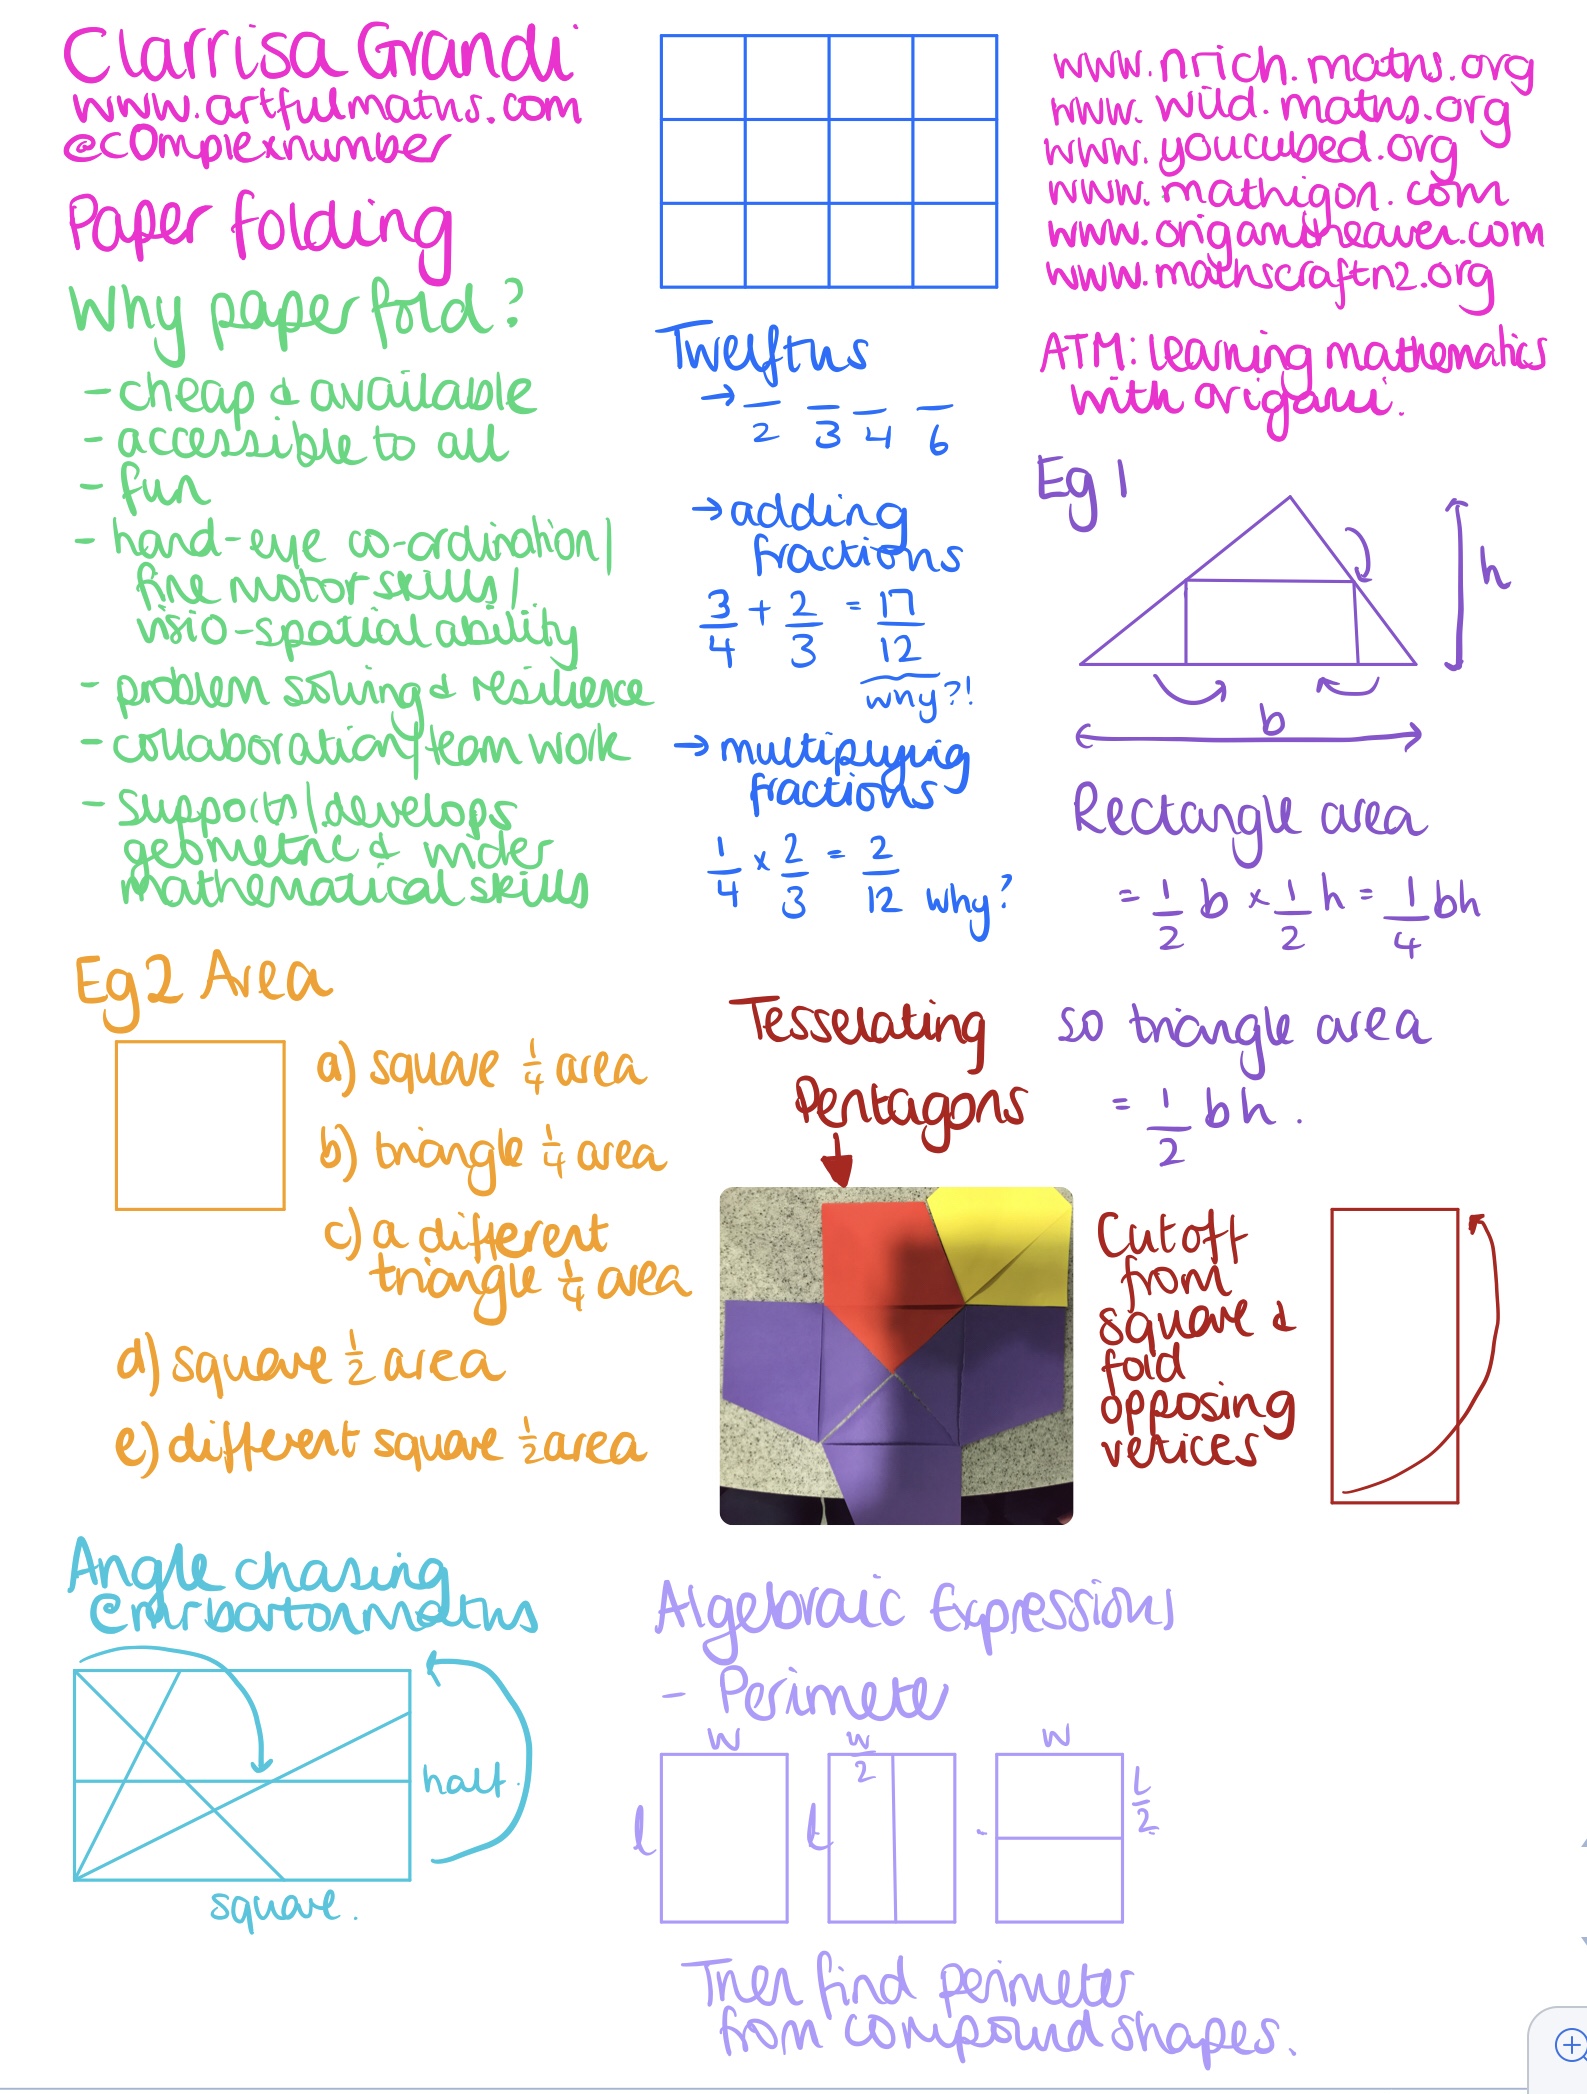 Clarrisa Grandi
www.artfulmaths.com
@c0mplexnumber
Paper folding
Why paper fold?
- cheap & available
- accessible to all
- fun
- hand-eye co-ordination/
fine motor skills/
visio-spatial ability
- problem solving & resilience
- collaboration/team work
- supports/develops
geometric & wider
mathematical skills
Twelfths
→ /2 /3 /4 /6
→ adding
fractions
3/4 + 2/3 = 17/12
why?!
→ multiplying
fractions
1/4 × 2/3 = 2/12 why?
www.nrich.maths.org
www.wild.maths.org
www.youcubed.org
www.mathigon.com
www.origamiheaven.com
www.mathscraftnz.org
ATM: learning mathematics
with origami.
Eg 1
h
b
Rectangle area
= 1/2 b × 1/2 h = 1/4 bh
so triangle area
= 1/2 bh.
Eg 2 Area
a) square 1/4 area
b) triangle 1/4 area
c) a different
triangle 1/4 area
d) square 1/2 area
e) different square 1/2 area
Tesselating
Pentagons
Cut off
from
square &
fold
opposing
vertices
Angle chasing
@mrbartonmaths
half.
square.
Algebraic Expressions
- Perimeter
w w/2 w
l l l/2
Then find perimeter
from compound shapes.